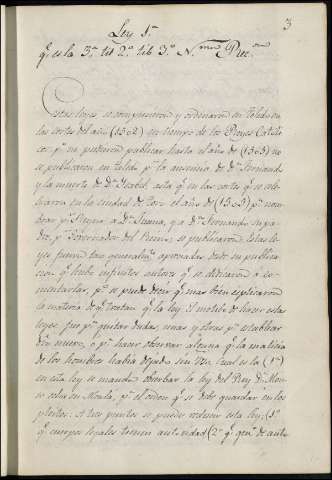 3
Ley 1ª
qe es la 3ª tit 2º lib 3º N.
Estas leyes se compusieron y ordenaron en Toledo en
las cortes del año (1502) en tiempo de los Reyes Catoli
cos; pº no pudieron publicar hasta el año de (1505) no
se publicaron en Toledo pr la ausencia de Dn Fernando
y la muerte de Dª Isabel, esta qe en las cortes qe se cele
braron en la ciudad de Toro el año de (1505) pª nom
brar pr Reyna a Dª Juana, y a Dn Fernando su pa
dre, pr Governador del Reino, se publicaron. Estas le
yes fueron tan generalmte aprovadas desde su publica
cion qe hubo infinitos autores qe se dedicaron á co
mentarlas, pº se puede decir qe mas bien esplicaron
la materia de qe tratan qe la ley. El motibo de hacer estas
leyes fue pª quitar dudas, unas y otras pª establecer
dro nuevo, o pª hacer observar alguna qe la malicia
de los hombres habia dejado sin uso. Cual es la (1ª)
en esta ley se manda observar la ley del Rey Dn Alon
so echa en Alcala, pr el orden qe se debe guardar en los
pleitos: A tres puntos se puede reducir esta ley (1º
qe cuerpos legales tienen autoridad (2º qe genº de auto